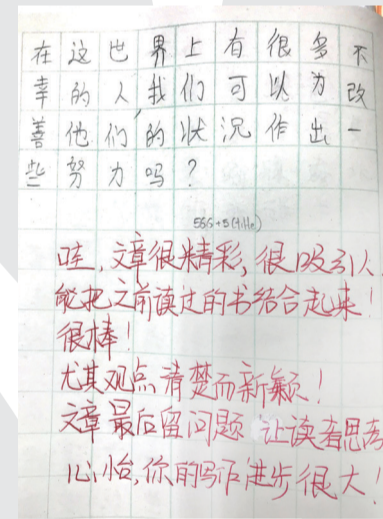 在这世界上有很多不
幸的人,我们可以为改
善他们的状况作出一
些努力吗?
556+5(title)
哇,文章很精彩,很吸引人
能把之前读过的书结合起来!
很棒!
尤其观点清楚而新颖!
文章最后留问题 让读者思考
心怡,你的写作进步很大!